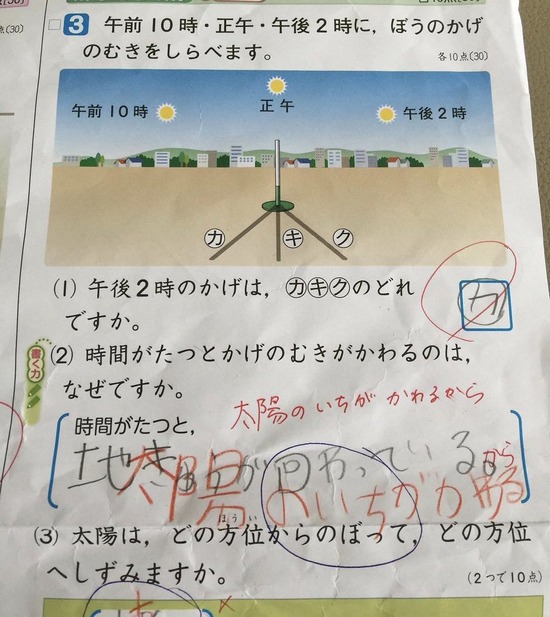 3 午前10時・正午・午後2時に，ぼうのかげ
のむきをしらべます。
各10点(30)
午前10時
正午
午後2時
カ
キ
ク
(1) 午後2時のかげは，カキクのどれ
ですか。
カ
書く力
(2) 時間がたつとかげのむきがかわるのは，
なぜですか。
太陽のいちがかわるから
時間がたつと，
地きゅうが回わっているから
太陽のいちがかわる
(3) 太陽は，どの方位からのぼって，どの方位
ほうい
へしずみますか。
(2つで10点)